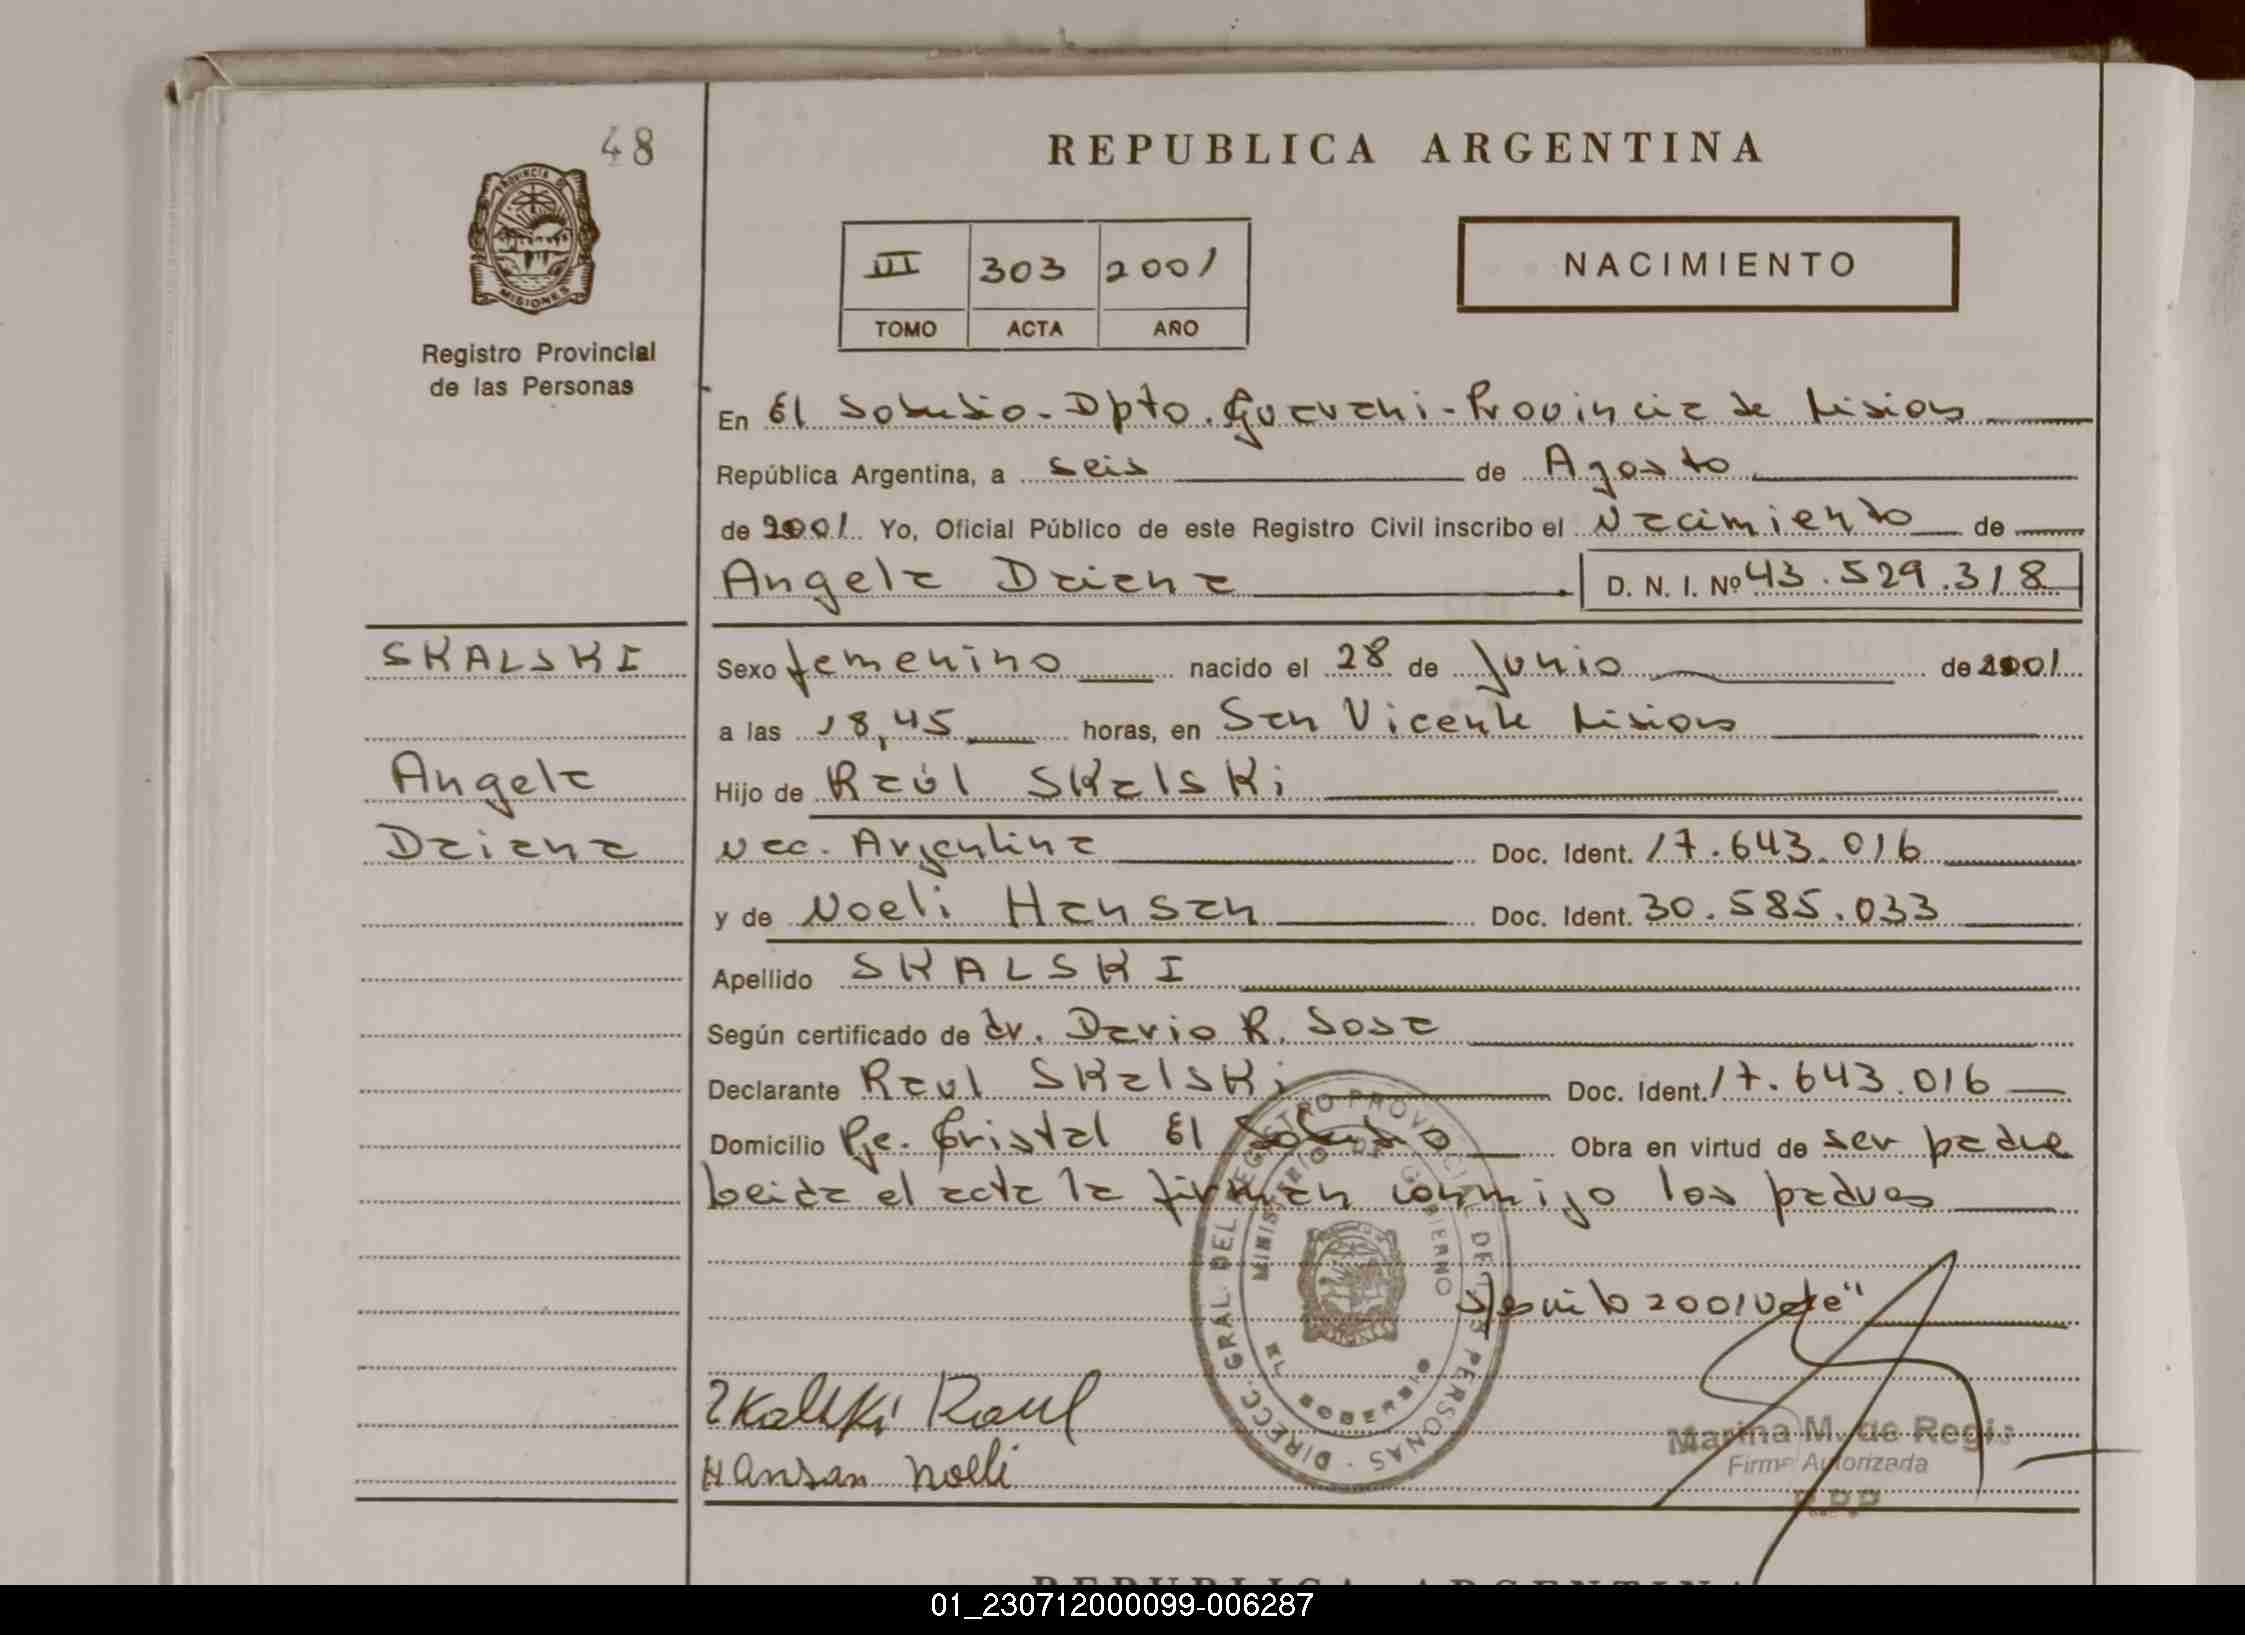 48
PROVINCIA DE
MISIONES
Registro Provincial
de las Personas
REPUBLICA ARGENTINA
III 303 2001
TOMO ACTA AÑO
NACIMIENTO
En El Soberbio - Dpto. Guarani - Provincia de Misiones
República Argentina, a seis de Agosto
de 2001 Yo, Oficial Público de este Registro Civil inscribo el Nacimiento de
Angela Daiana D. N. I. Nº 43.529.318
SKALSKI
Angela
Daiana
Sexo femenino nacido el 28 de Junio de 2001
a las 18,45 horas, en San Vicente Misiones
Hijo de Raúl Skalski
Nac. Argentina Doc. Ident. 17.643.016
y de Noeli Hansan Doc. Ident. 30.585.033
Apellido SKALSKI
Según certificado de dr. Dario R. Sosa
Declarante Raul Skalski Doc. Ident. 17.643.016
Domicilio Pje. Cristal El Soberbio Obra en virtud de ser padre
Leida el acta la firman conmigo los padres
2001 Vale"
Skalski Raul
Hansan Noeli
DIRECC. GRAL. DEL REGISTRO PROVINCIAL DE LAS PERSONAS
MINISTERIO DE GOBIERNO
EL SOBERBIO
Marina M. de Regis
Firma Autorizada
R.P.P.
REPUBLICA ARGENTINA
01_230712000099-006287